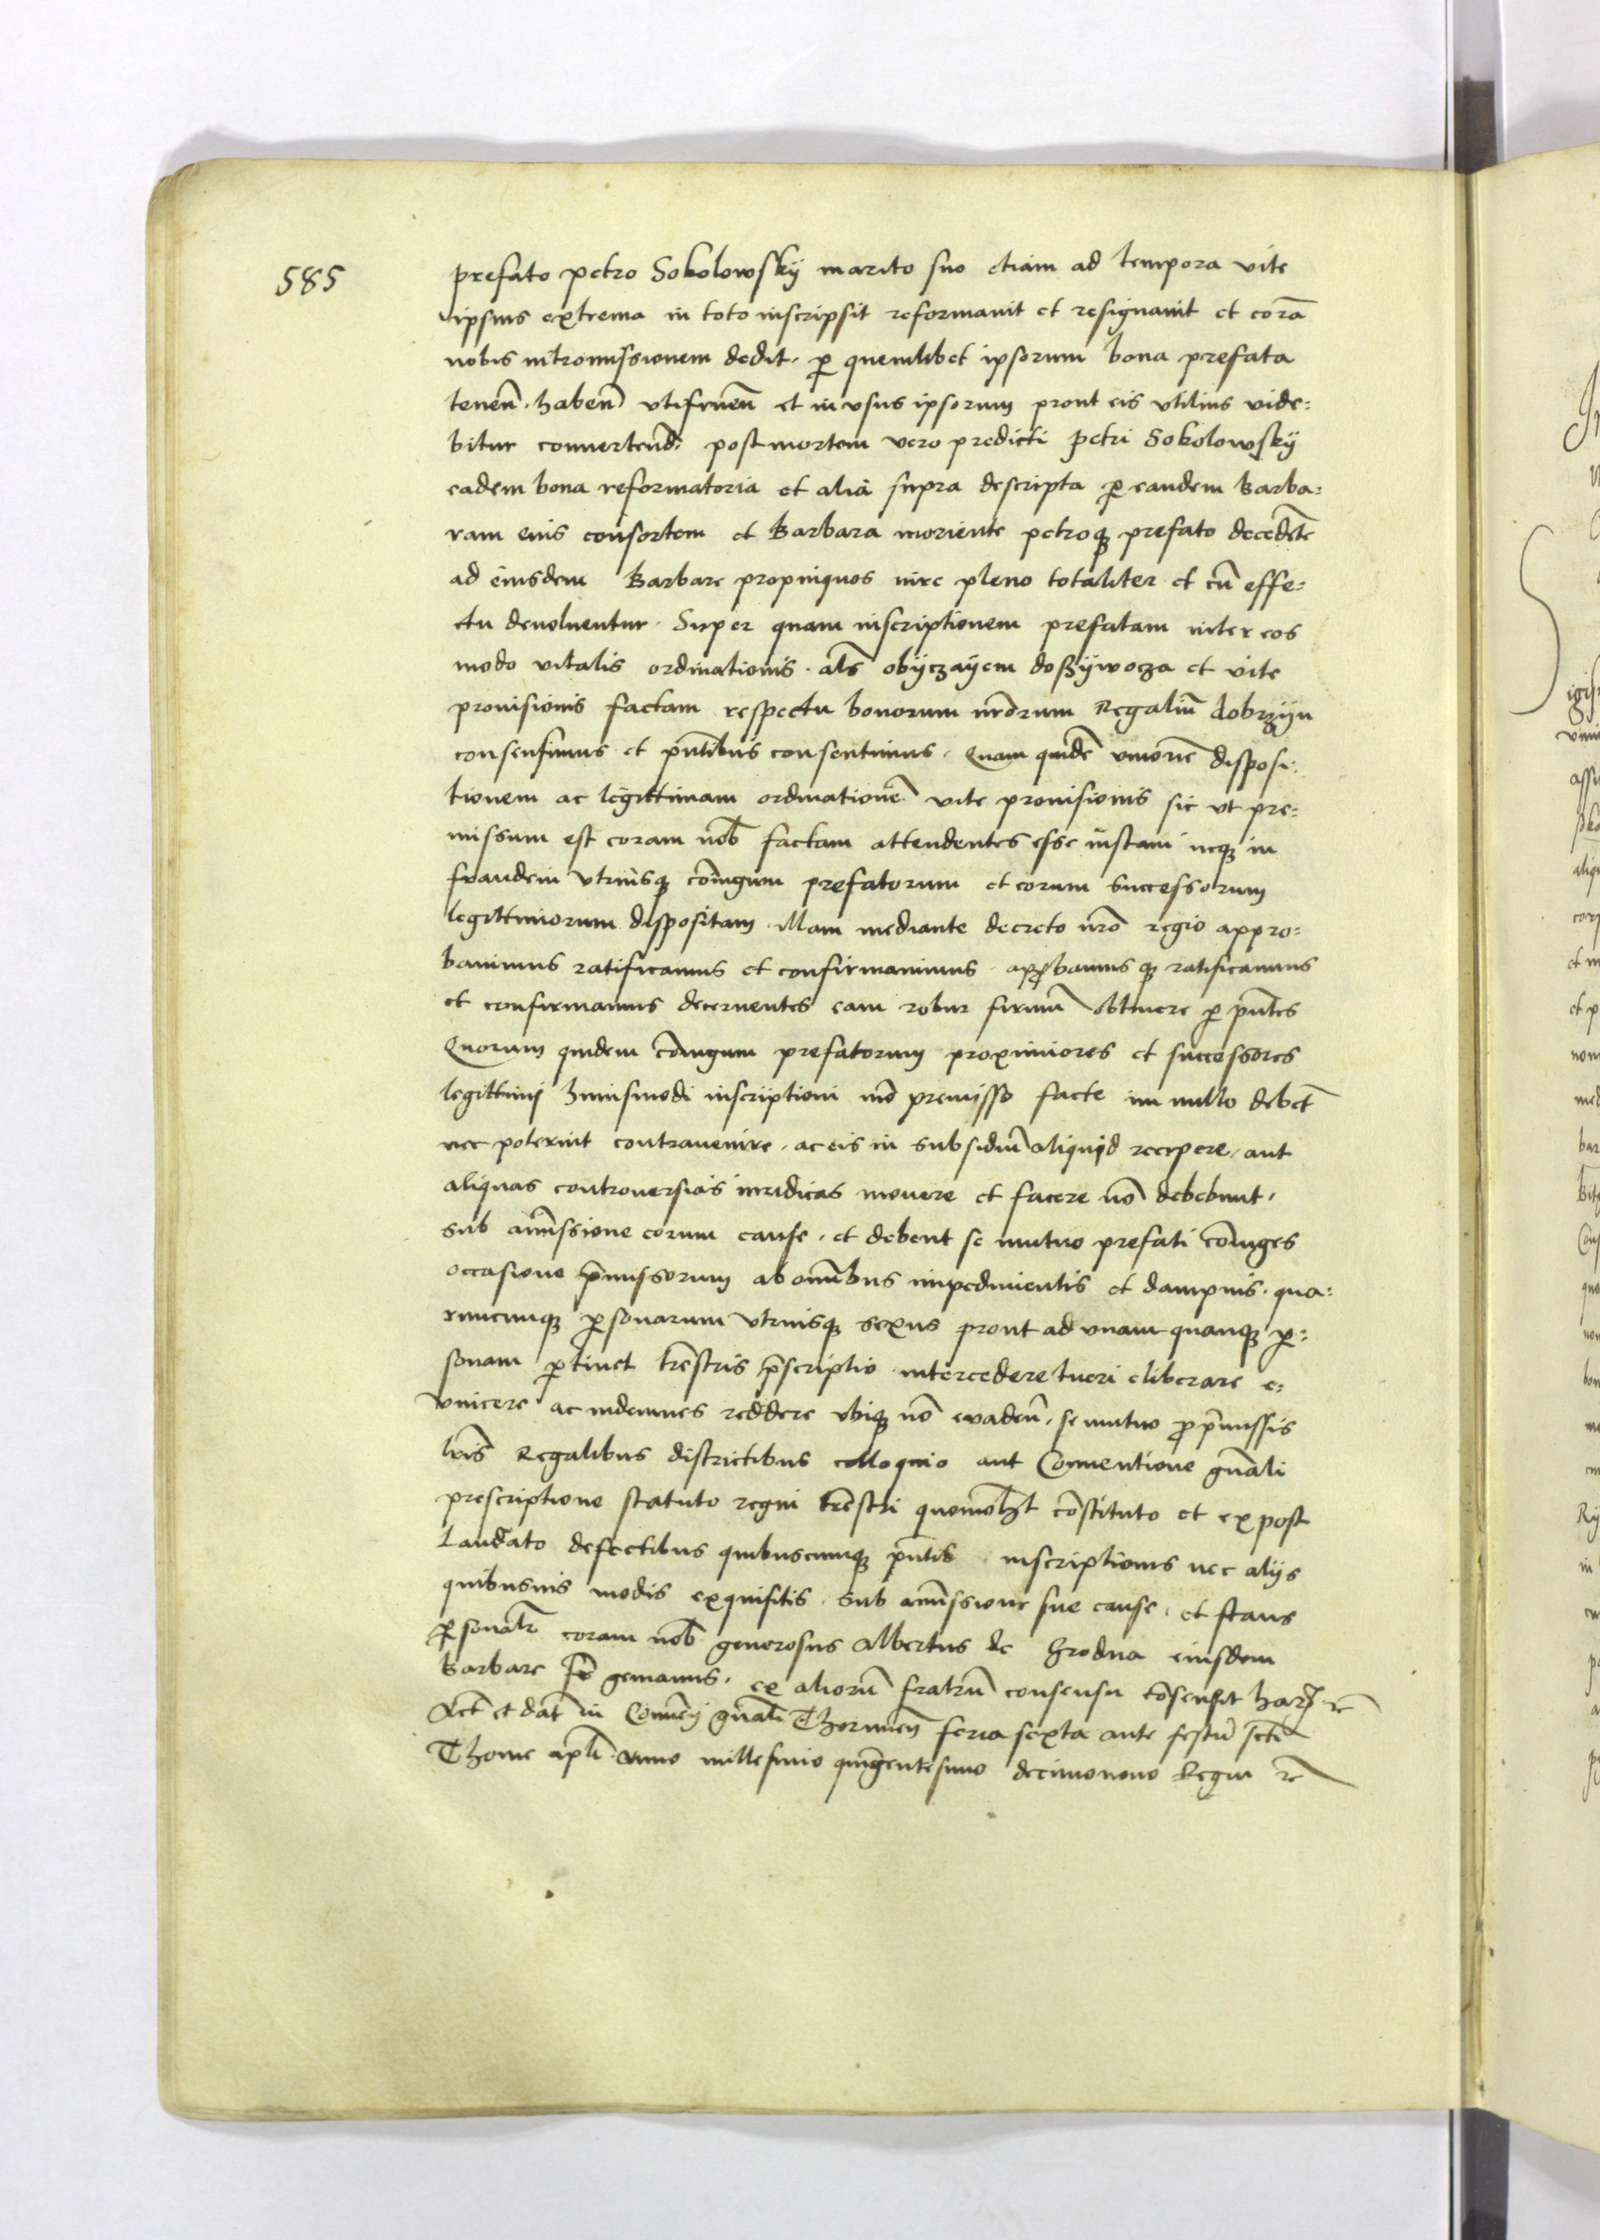 585
prefato petro Sokolowsky marito suo etiam ad tempora vite
ipsius extrema in toto inscripsit reformavit et resignavit et corā
nobis intromissionem dedit. p quemlibet ipsorum bona prefata
tenen̄. haben̄ utifruen̄ et in usus ipsorum prout eis utilius vide:
bitur convertend. post mortem vero predicti petri Sokolowsky
eadem bona reformatoria et alia supra descripta p eandem Barba:
ram eius consortem et Barbara moriente petroq prefato decedēte
ad eiusdem Barbare propinquos iure pleno totaliter et cū effe:
ctu devolventur. Super quam inscriptionem prefatam inter eos
modo vitalis ordinationis. als̄ obyczayem doßywocza et vite
provisionis factam respectu bonorum nr̄orum Regaliū dobrzyn
consensimus et pn̄tibus consentimus. Quam quidē unionē disposi:
tionem ac legittimam ordinationē vite provisionis sic ut pre:
missum est coram nob̄ factam attendentes esse iustam neq in
fraudem utriusq cōiugum prefatorum et eorum successorum
legittimorum dispositam illam mediante decreto nr̄o regio appro:
bavimus ratificavimus et confirmavimus. appbamus q ratificamus
et confirmamus decernentes eam robur firmū obtinere p pn̄tes
Quorum quidem cōiugum prefatorum proximiores et successores
legittimj huiusmodi inscriptioni mō premisso facte in nullo debēt
nec poterint contravenire. ac eis in subsidiū aliquid recipere, aut
aliquas controversias iuridicas movere et facere nō debebunt.
sub amissione eorum cause. et debent se mutuo prefati cōiuges
occasione p̄missorum ab omībus impedimentis et dampnis. qua:
rumcumq psonarum utriusq sexus prout ad unam quamq p:
sonam ptinet trēstris p̄scriptio intercedere tueri eliberare e:
vincere ac indemnes reddere ubiq nō evaden̄. se mutuo p p̄missis
lrīs Regalibus districtibus colloquio aut Conventione gn̄ali
prescriptione statuto regni trēstri quomōlt cōstituto et ex post
Laudato defectibus quibuscumq pn̄tis inscriptionis nec alijs
quibusvis modis exquisitis. sub amissione sue cause. et stans
psonalr̄ coram nob̄ generosus Albertus de Srodna eiusdem
Barbare fr̄ germanus. ex aliorū fratrū consensu cōsensit har rē
Act̄ et dat̄ in Conuen̄ gn̄ali Thorunen̄ feria sexta ante festū scti
Thome apli. Anno millesimo quingentesimo decimonono Regni rē